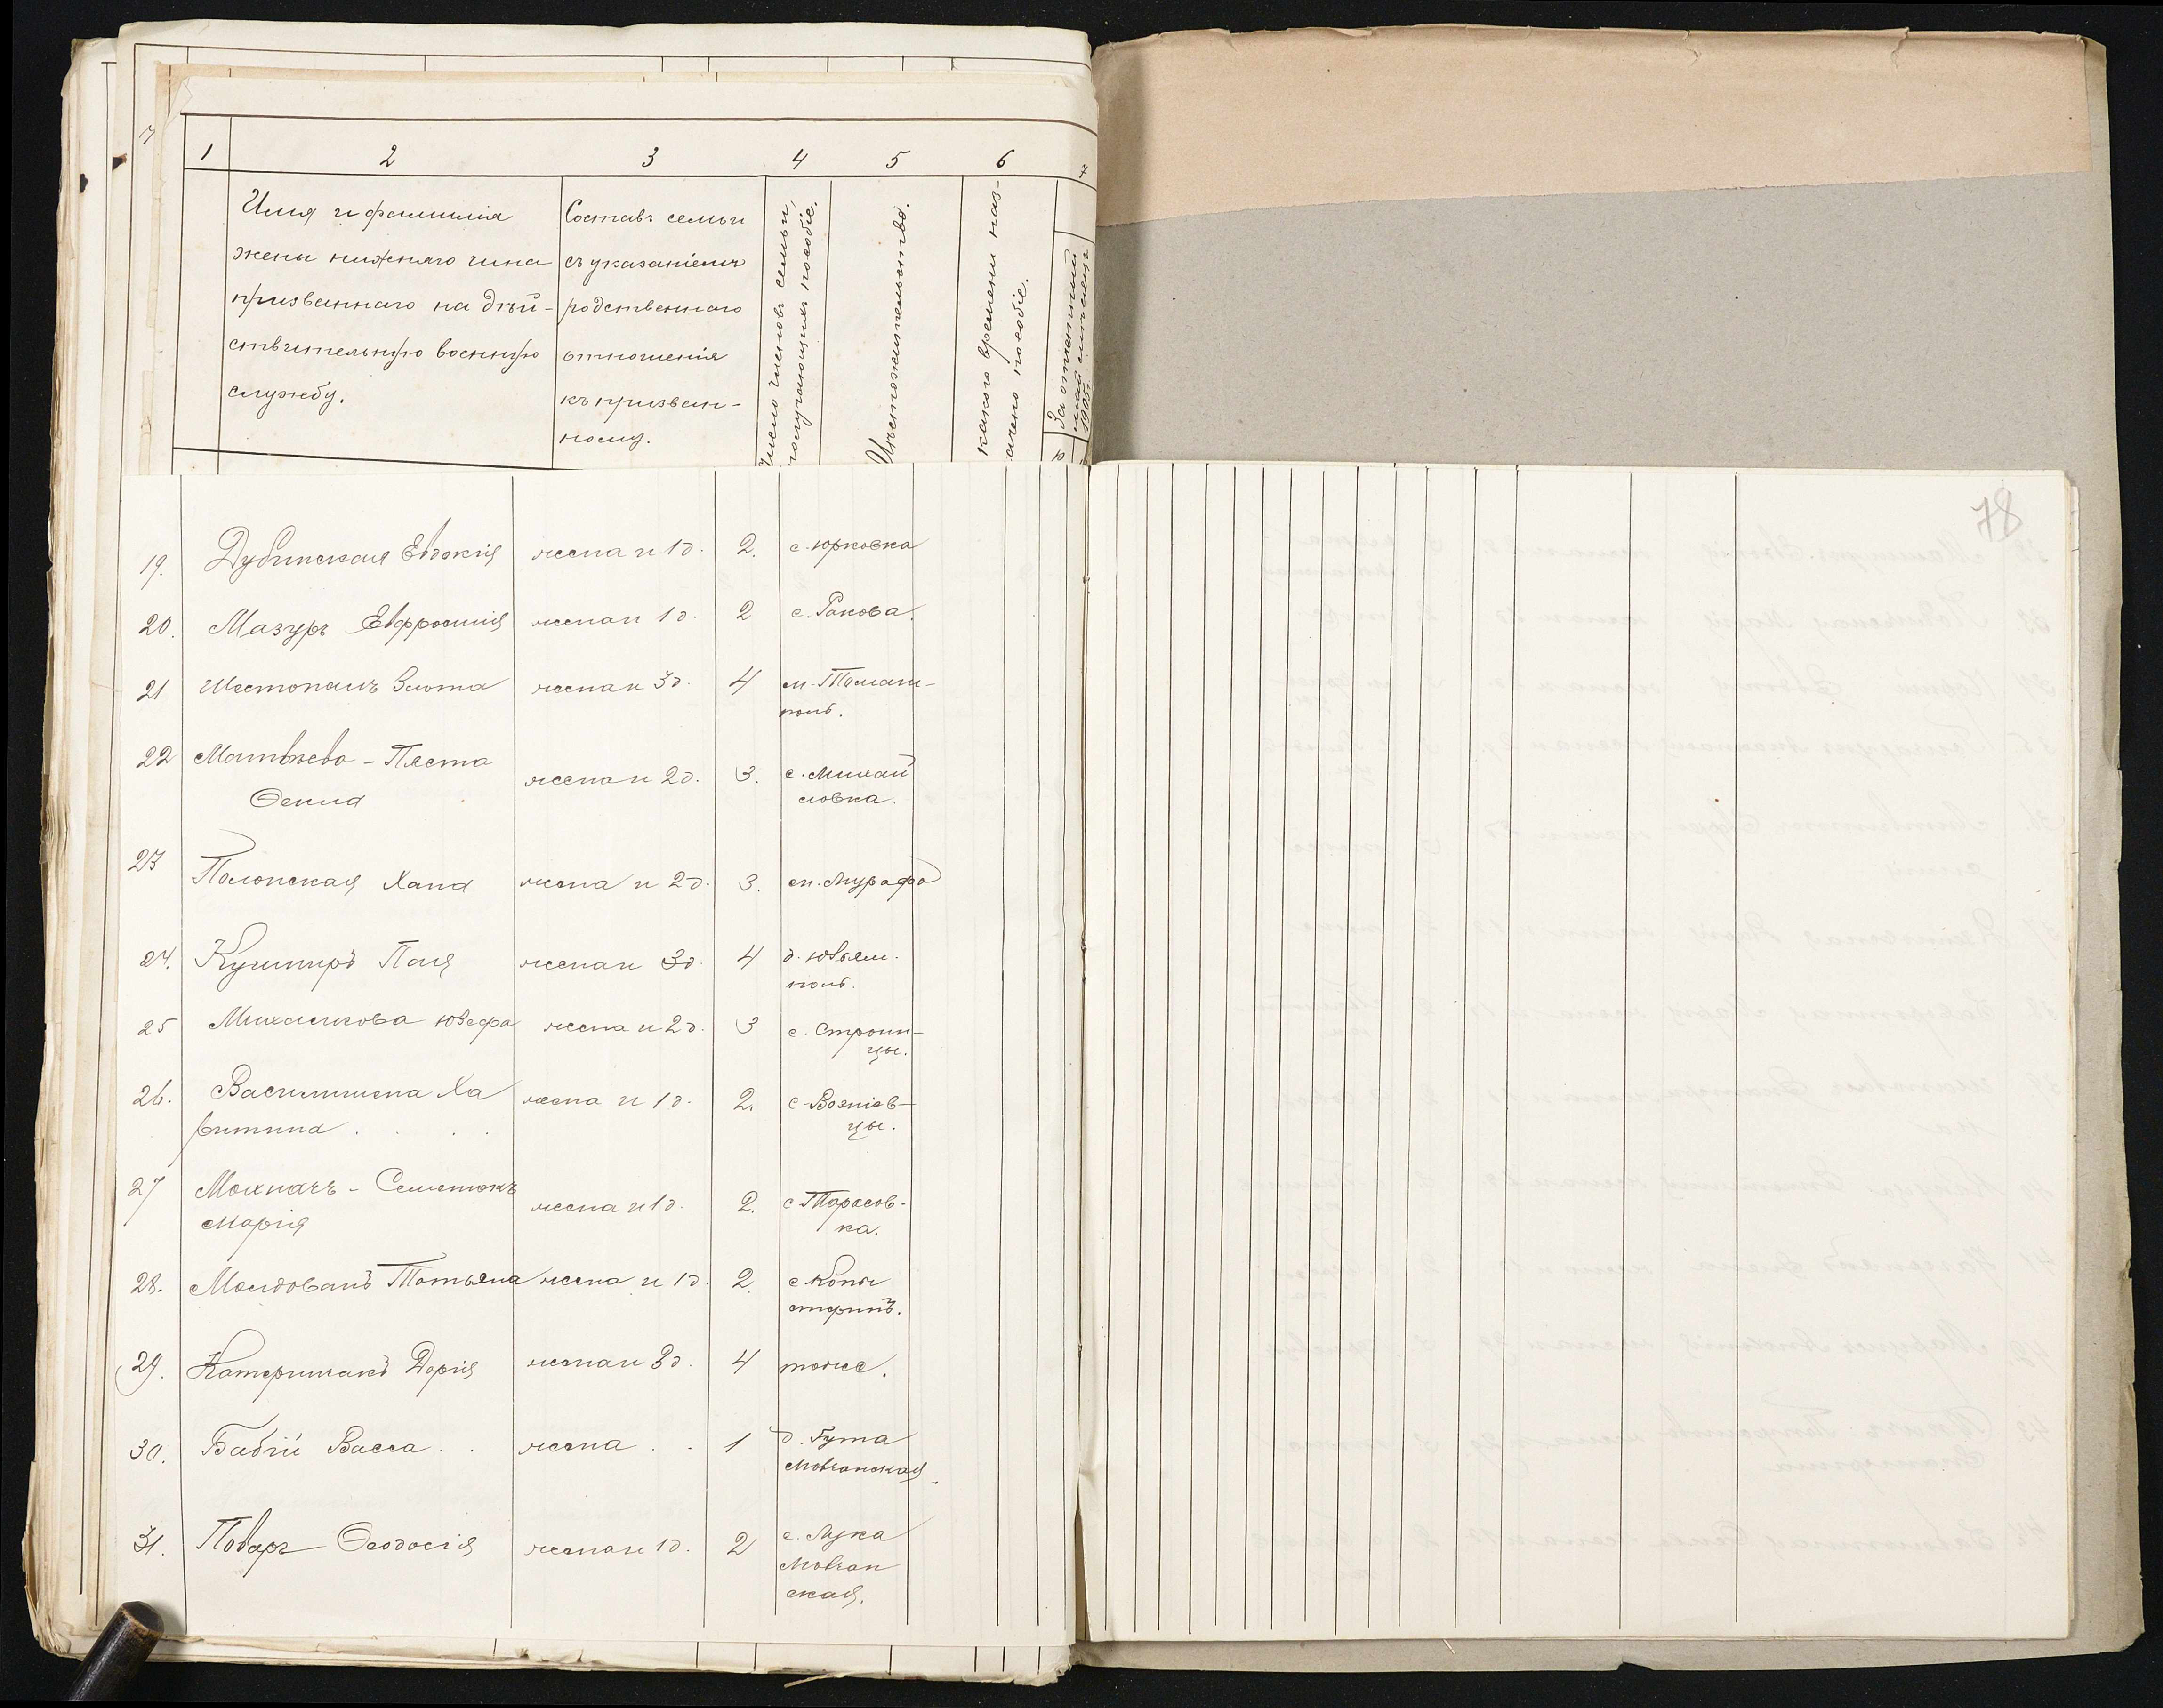 1 2 3 4 5 6 7
Имя и фамилія
жены нижняго чина
призваннаго на дѣй-
ствительную военную
службу.
Составъ семьи
съ указаніемъ
родственнаго
отношенія
къ призван-
ному.
Число членовъ семьи,
получающихъ пособіе.
Мѣстожительство.
какого времени наз-
ачено пособіе.
1905
78
19. Дубинская Евдокія жена и 1 д. 2. с. Юрковка
20. Мазуръ Евфросинія жена и 1 д. 2 с. Ракова.
21 Шестопалъ Злота жена и 3 д. 4 м. Томаш-
поль.
22 Матвѣева - Пяста жена и 2 д. 3. с. Михай
Фекла ловка.
23 Полонская Хана жена и 2 д. 3. м. Мурафа
24. Кушниръ Поля жена и 3 д. 4 д. Юзьям-
поль.
25 Михалкова Юзефа жена и 2 д. 3 с. Строин-
цы.
26. Василишена Ха жена и 1 д. 2. с. Вознів-
ритина . . . цы.
27 Мохначъ - Семенюкъ жена и 1 д. 2. с. Тарасов-
Марія ка.
28. Молдованъ Татьяна жена и 1 д. 2. с. Копы
стринъ.
29. Катеринчакъ Дарія жена и 3 д. 4 тоже.
30. Бабій Васса . . жена . . 1 д. Гута
Мовчанская.
31. Поваръ Феодосія жена и 1 д. 2 с. Лука
Мовчан
ская.